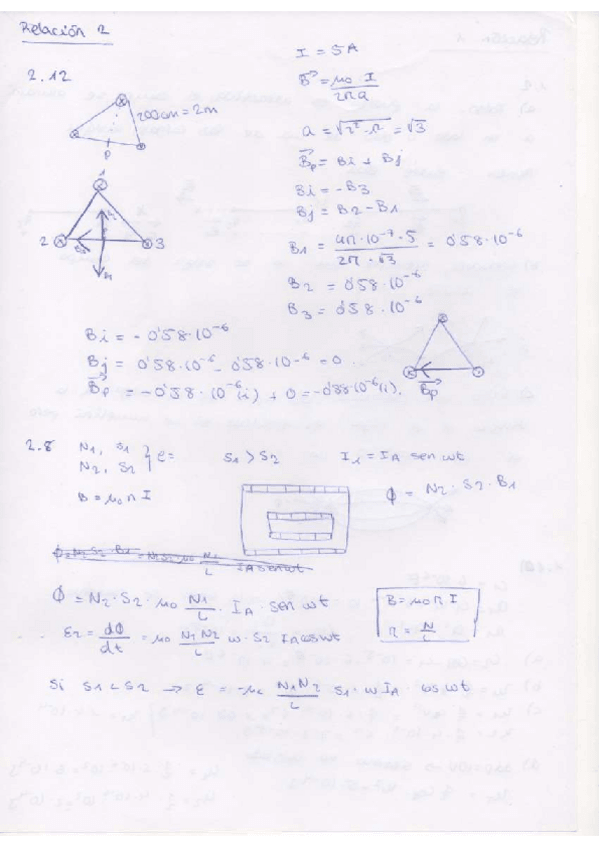 Relación 2
2.12
200cm = 2m
P
I = 5A
B = μ0 I / 2πa
a = √ = √3
Bp = Bi + Bj
Bi = -B3
Bj = B2 - B1
B1 = 4π·10^-7·5 / 2π·√3 = 0'58·10^-6
B2 = 0'58·10^-6
B3 = 0'58·10^-6
1
2
3
Bi = - 0'58·10^-6
Bj = 0'58·10^-6 - 0'58·10^-6 = 0
Bp = -0'58·10^-6 (i) + 0 = -0'58·10^-6 (i).
Bp
2.8
N1, S1
N2, S2 } e=
S1 > S2
I1 = IA sen wt
B = μ0 n I
Φ = N2 · S2 · B1
Φ = N2 · S2 · μ0 N1/L · IA · sen wt
B = μ0 n I
n = N/L
ε2 = dΦ/dt = μ0 N1 N2/L w · S2 IA cos wt
Si S1 < S2 → ε = -μ0 N1N2/L S1 · w IA · cos wt